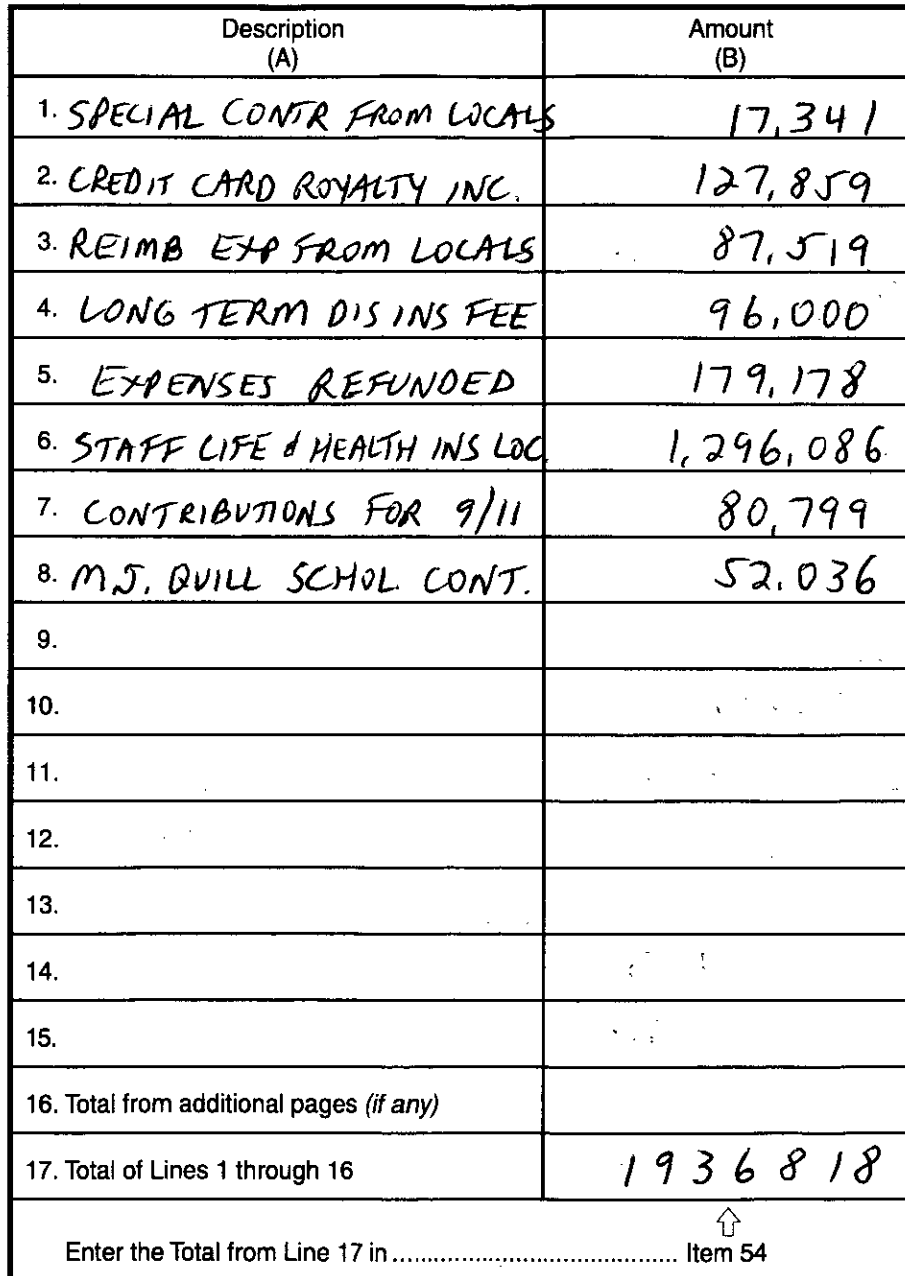 Description Amount
(A) (B)
1. SPECIAL CONTR FROM LOCALS 17,341
2. CREDIT CARD ROYALTY INC. 127,859
3. REIMB EXP FROM LOCALS 87,519
4. LONG TERM DIS INS FEE 96,000
5. EXPENSES REFUNDED 179,178
6. STAFF LIFE & HEALTH INS LOC 1,296,086
7. CONTRIBUTIONS FOR 9/11 80,799
8. M.J. QUILL SCHOL. CONT. 52,036
9.
10.
11.
12.
13.
14.
15.
16. Total from additional pages (if any)
17. Total of Lines 1 through 16 1936818
Enter the Total from Line 17 in ........................................ Item 54